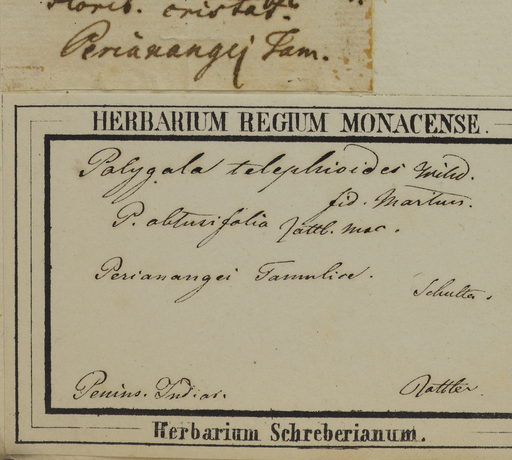 Florib. cristat.
Perianangej Tam.
HERBARIUM REGIUM MONACENSE.
Polygala telephioides Willd.
fid. Martius.
P. obtusifolia Rottl. msc.
Perianangei Tamulice.
Schultes.
Penins. Indiae.
Rottler.
Herbarium Schreberianum.